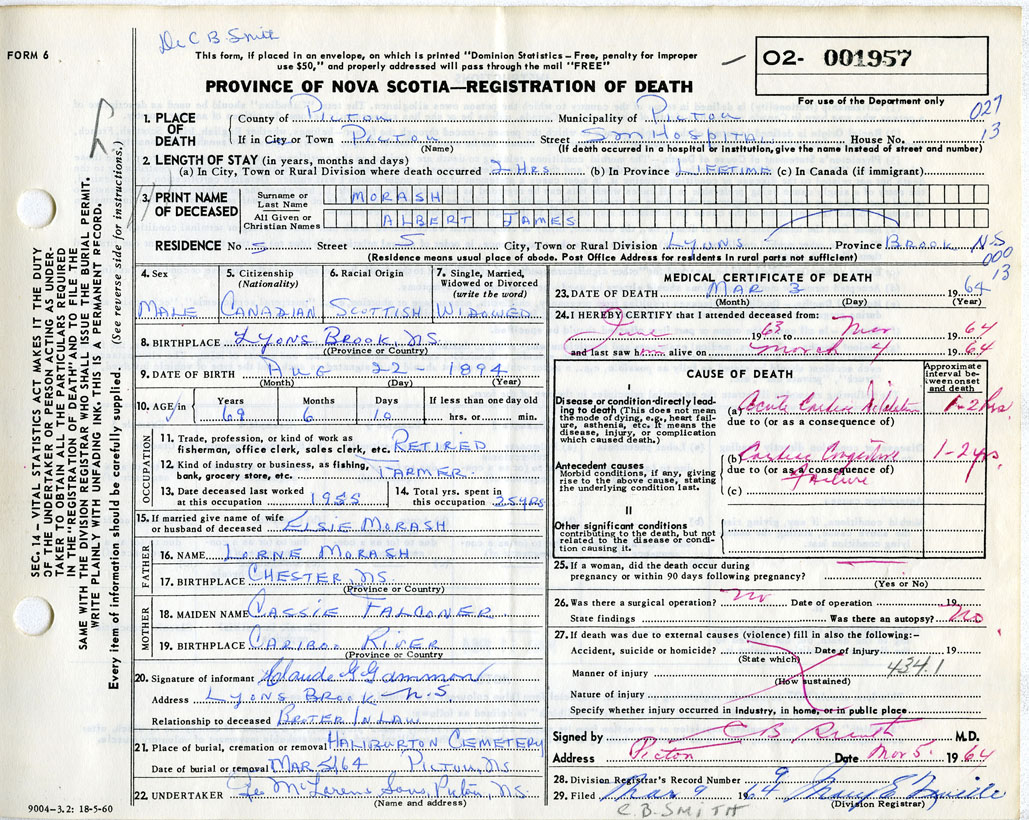 Dr C B Smith
FORM 6
This form, if placed in an envelope, on which is printed "Dominion Statistics – Free, penalty for improper
use $50," and properly addressed will pass through the mail "FREE"
02- 001957
For use of the Department only
PROVINCE OF NOVA SCOTIA—REGISTRATION OF DEATH
027
13
1. PLACE OF DEATH
County of PICTOU Municipality of PICTOU
If in City or Town PICTOU Street SM HOSPITAL House No.
(Name) (If death occurred in a hospital or institution, give the name instead of street and number)
2. LENGTH OF STAY (in years, months and days)
(a) In City, Town or Rural Division where death occurred 2 HRS. (b) In Province LIFETIME (c) In Canada (if immigrant)
3. PRINT NAME OF DECEASED
Surname or Last Name MORASH
All Given or Christian Names ALBERT JAMES
RESIDENCE No S Street S City, Town or Rural Division LYONS Province BROOK NS
(Residence means usual place of abode. Post Office Address for residents in rural parts not sufficient)
000
13
4. Sex MALE
5. Citizenship (Nationality) CANADIAN
6. Racial Origin SCOTTISH
7. Single, Married, Widowed or Divorced (write the word) WIDOWED
8. BIRTHPLACE LYONS BROOK, NS
(Province or Country)
9. DATE OF BIRTH AUG 22 - 1894
(Month) (Day) (Year)
10. AGE in Years 69 Months 6 Days 10 If less than one day old hrs. or min.
OCCUPATION
11. Trade, profession, or kind of work as
fisherman, office clerk, sales clerk, etc. RETIRED
12. Kind of industry or business, as fishing,
bank, grocery store, etc. FARMER
13. Date deceased last worked
at this occupation 1955
14. Total yrs. spent in
this occupation 25 YRS
15. If married give name of wife
or husband of deceased ELSIE MORASH
FATHER
16. NAME LORNE MORASH
17. BIRTHPLACE CHESTER NS
(Province or Country)
MOTHER
18. MAIDEN NAME CASSIE FALCONER
19. BIRTHPLACE CARIBOU RIVER
(Province or Country
20. Signature of informant Claude G Gammon
Address LYONS BROOK N.S.
Relationship to deceased BROTER IN LAW
21. Place of burial, cremation or removal HALIBURTON CEMETERY
Date of burial or removal MAR 5/64 PICTOU, NS
22. UNDERTAKER Geo McLarens Sons, Pictou, N.S.
(Name and address)
9004-3.2: 18-5-60
MEDICAL CERTIFICATE OF DEATH
23. DATE OF DEATH MAR 3 19 64
(Month) (Day) (Year)
24. I HEREBY CERTIFY that I attended deceased from:
June 19 63 Mar 19 64
and last saw him alive on March 4 19 64
CAUSE OF DEATH
Approximate
interval be-
tween onset
and death
I
Disease or condition directly lead-
ing to death (This does not mean
the mode of dying, e.g., heart fail-
ure, asthenia, etc. It means the
disease, injury, or complication
which caused death.)
(a) Acute Cardiac Dilatation 1-2 hrs.
due to (or as a consequence of)
Antecedent causes
Morbid conditions, if any, giving
rise to the above cause, stating
the underlying condition last.
(b) Cardiac Congestive 1-2 yrs.
due to (or as a consequence of)
Failure
(c)
II
Other significant conditions
contributing to the death, but not
related to the disease or condi-
tion causing it.
25. If a woman, did the death occur during
pregnancy or within 90 days following pregnancy?
(Yes or No)
26. Was there a surgical operation? no Date of operation 19
State findings Was there an autopsy? No
27. If death was due to external causes (violence) fill in also the following:–
Accident, suicide or homicide? Date of injury 19
(State which)
Manner of injury 434.1
(How sustained)
Nature of injury
Specify whether injury occurred in industry, in home, or in public place
Signed by C B Smith M.D.
Address Pictou Date Mar 5. 19 64
28. Division Registrar's Record Number 9
29. Filed Mar 9 19 64
(Division Registrar)
C.B. SMITH
SEC. 14 – VITAL STATISTICS ACT MAKES IT THE DUTY
OF THE UNDERTAKER OR PERSON ACTING AS UNDER-
TAKER TO OBTAIN ALL THE PARTICULARS REQUIRED
IN THE "REGISTRATION OF DEATH" AND TO FILE THE
SAME WITH THE DIVISION REGISTRAR WHO SHALL ISSUE THE BURIAL PERMIT.
WRITE PLAINLY WITH UNFADING INK. THIS IS A PERMANENT RECORD.
Every item of information should be carefully supplied. (See reverse side for instructions.)